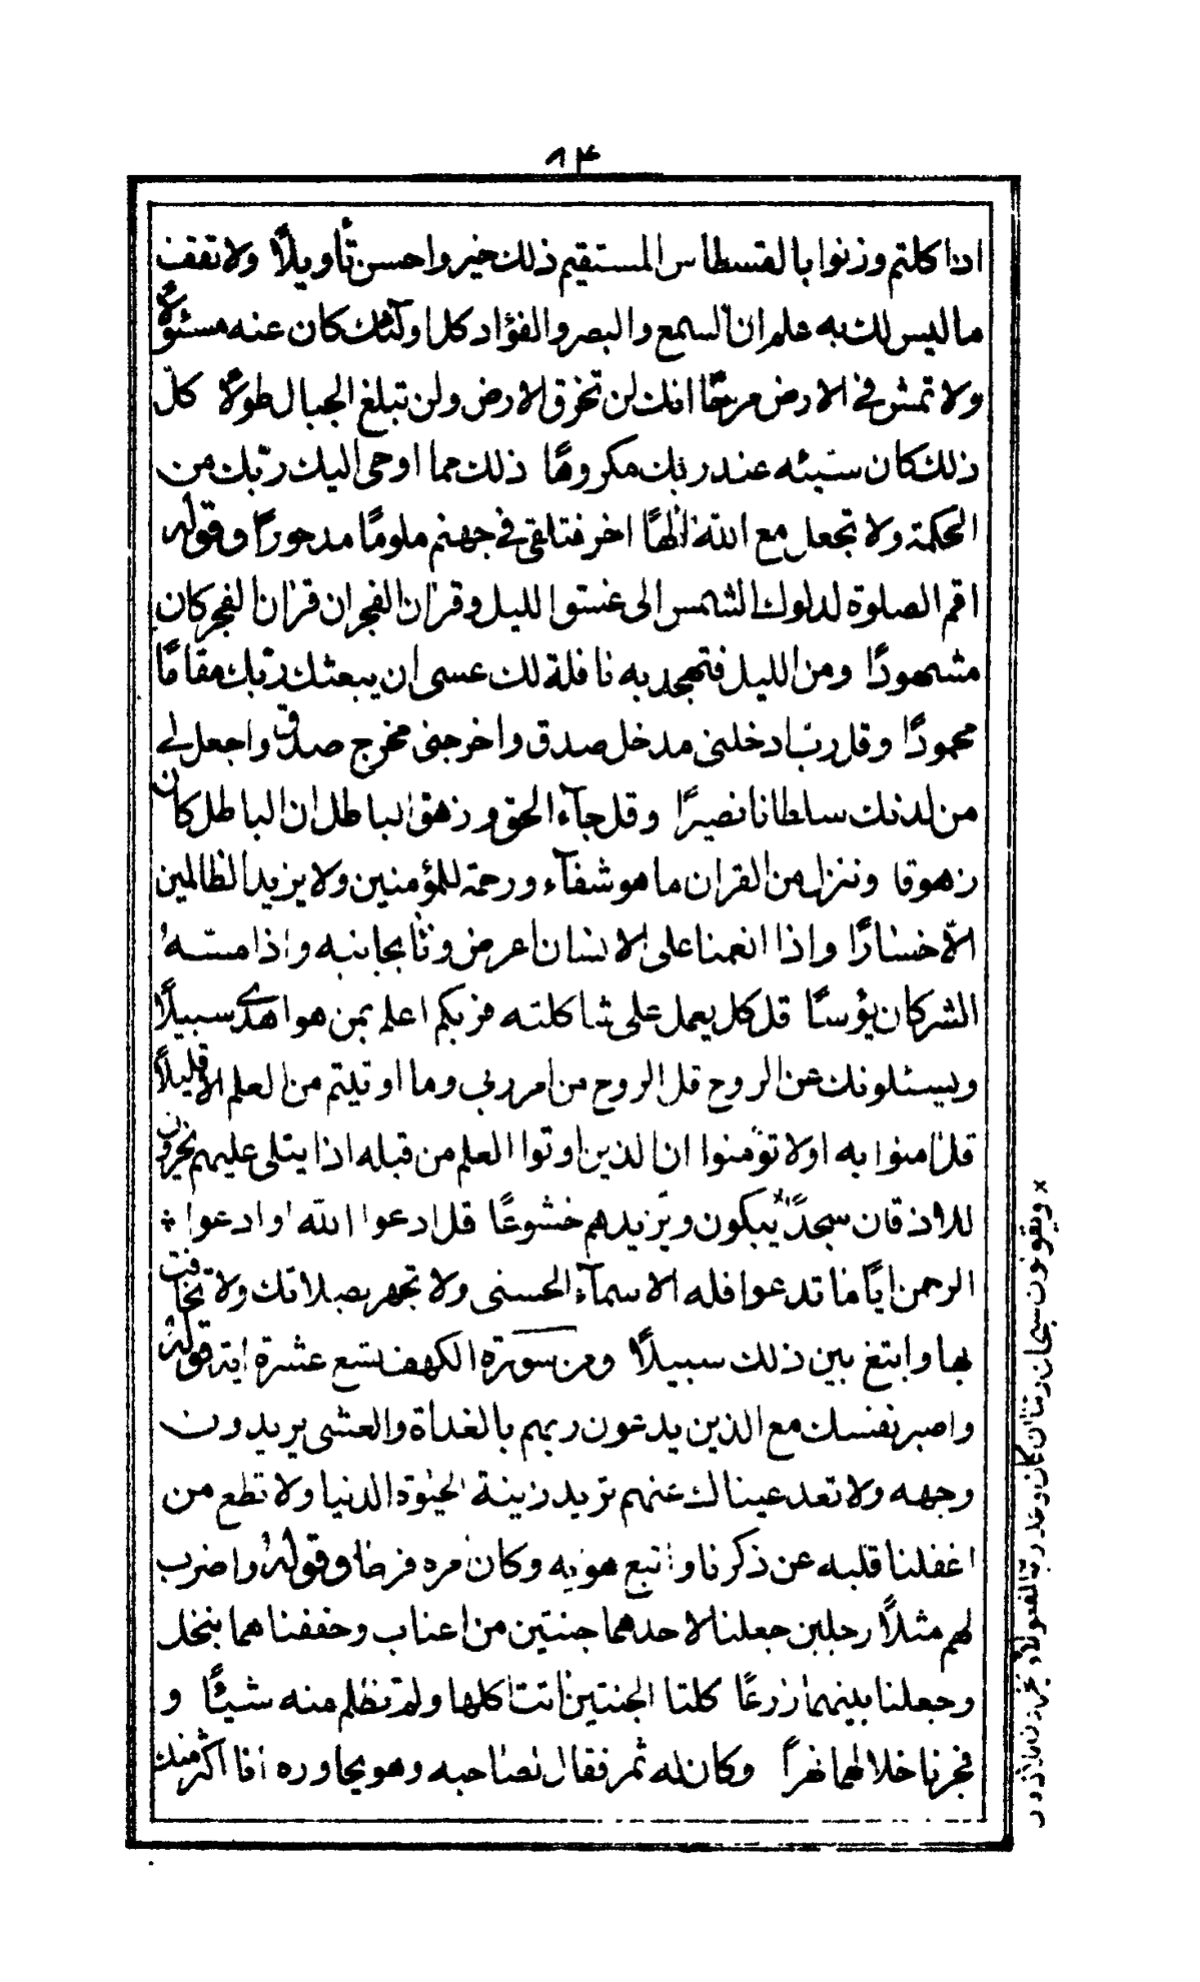 ٨۴
اذا كلتم وزنوا بالقسطاس المستقيم ذلك خير واحسن تأويلاً ولا تقف
ما ليس لك به علم ان السمع والبصر والفؤاد كل اولئك كان عنه مسئولاً
ولا تمش في الارض مرحًا انك لن تخرق الارض ولن تبلغ الجبال طولاً كل
ذلك كان سيئه عند ربك مكروهًا ذلك مما اوحى اليك ربّك من
الحكمة ولا تجعل مع الله الٰهًا اخر فتلقى في جهنم ملومًا مدحورًا وقوله
اقم الصلوة لدلوك الشمس الى غسق الليل وقران الفجر ان قران الفجر كان
مشهودًا ومن الليل فتهجد به نافلة لك عسى ان يبعثك ربّك مقامًا
محمودًا وقل ربّ ادخلنى مدخل صدق واخرجنى مخرج صدق واجعل لي
من لدنك سلطانا نصيرًا وقل جآء الحق وزهق الباطل ان الباطل كان
زهوقا وننزل من القران ما هو شفآء ورحمة للمؤمنين ولا يزيد الظالمين
الّا خسارًا واذا انعمنا على الانسان اعرض ونا بجانبه واذا مسّه
الشر كان يؤسًا قل كل يعمل على شاكلته فربكم اعلم بمن هو اهدى سبيلًا
ويسئلونك عن الروح قل الروح من امر ربي وما اوتيتم من العلم الا قليلاً
قل امنوا به اولا تؤمنوا ان الذين اوتوا العلم من قبله اذا يتلى عليهم يخرون
للاذقان سجدًا × يبكون ويزيدهم خشوعًا قل ادعوا الله او ادعوا
الرحمن ايًا ما تدعوا فله الاسمآء الحسنى ولا تجهر بصلاتك ولا تخافت
بها وابتغ بين ذلك سبيلاً ومن سورة الكهف تسع عشرة اية قوله
واصبر نفسك مع الذين يدعون ربهم بالغداة والعشى يريدون
وجهه ولا تعد عيناك عنهم تريد زينة الحيٰوة الدنيا ولا تطع من
اغفلنا قلبه عن ذكرنا واتبع هويه وكان امره فرطا وقوله واضرب
لهم مثلاً رجلين جعلنا لاحدهما جنتين من اعناب وحففناهما بنخل
وجعلنا بينهما زرعًا كلتا الجنتين اتت اكلها ولم تظلم منه شيئًا و
فجرنا خلالهما نهرًا وكان له ثمر فقال لصاحبه وهو يحاوره انا اكثر منك
× ويقولون سبحان ربنا ان كان وعد ربنا لمفعولا ويخرون للاذقان